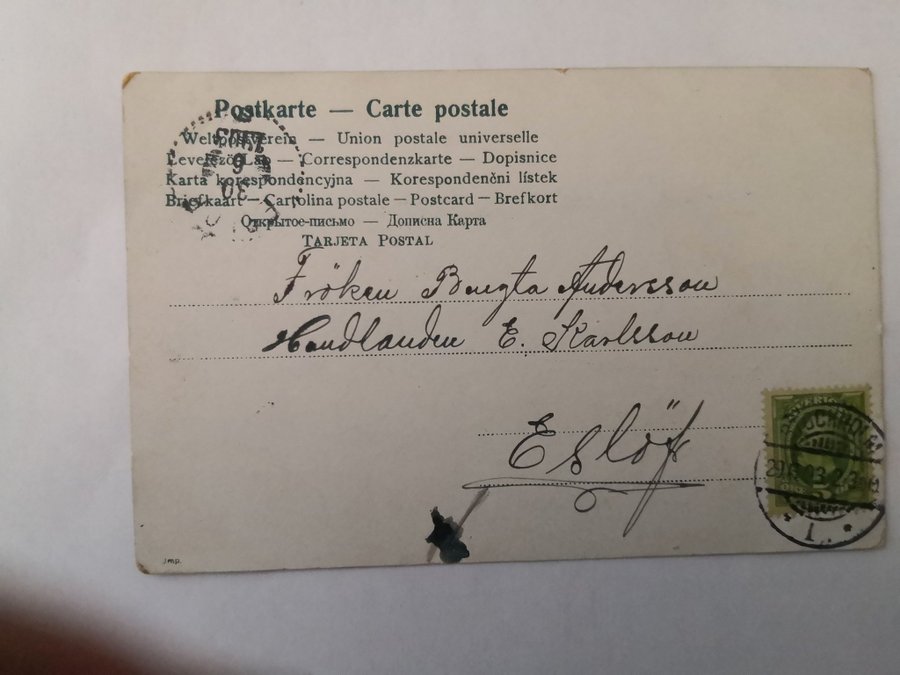 Postkarte — Carte postale
Weltpostverein — Union postale universelle
Levelező-Lap — Correspondenzkarte — Dopisnice
Karta korespondencyjna — Korespondenční lístek
Briefkaart — Cartolina postale — Postcard — Brefkort
Открытое-письмо — Дописна Карта
TARJETA POSTAL
Fröken Bengta Andersson
Handlanden E. Karlsson
Eslöf
SVERIGE
STOCKHOLM
1
Jmp.